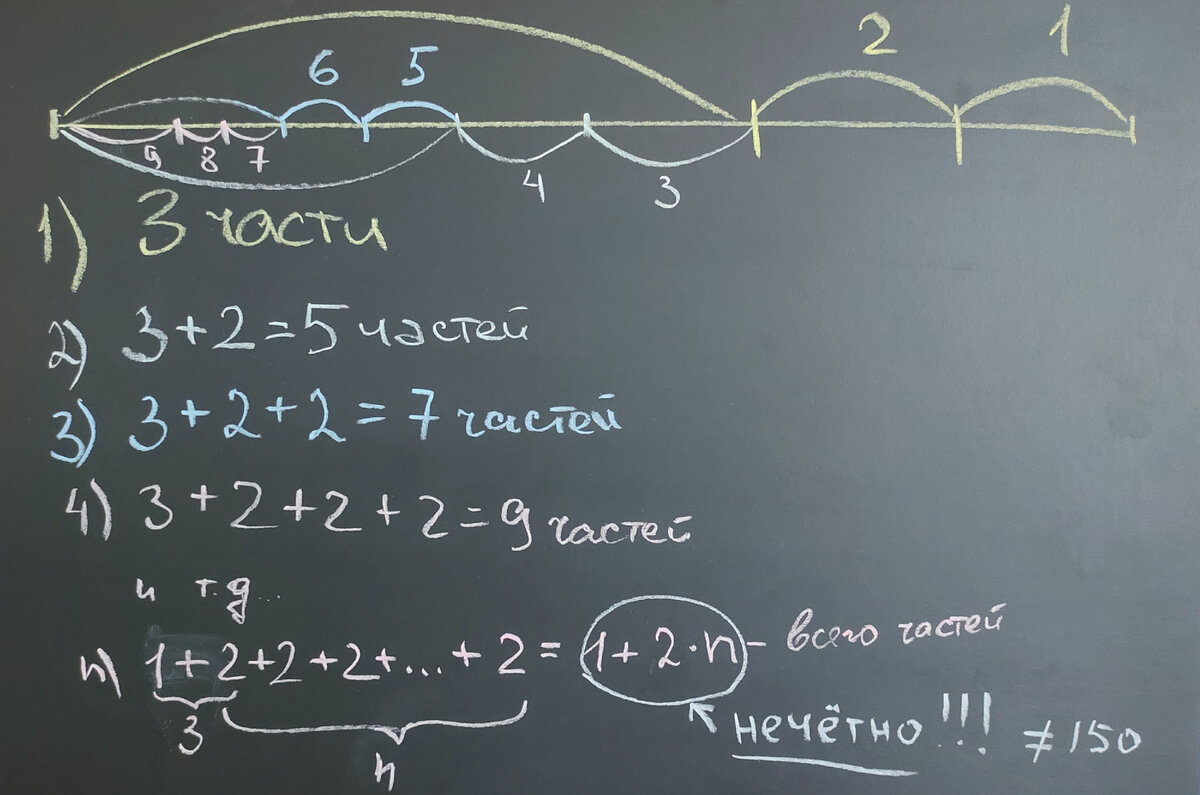 2 1
6 5
9 8 7
4 3
1) 3 части
2) 3+2=5 частей
3) 3+2+2=7 частей
4) 3+2+2+2=9 частей
и т.д...
n) 1+2+2+2+...+2=1+2·n - всего частей
3
n
нечётно!!! ≠150